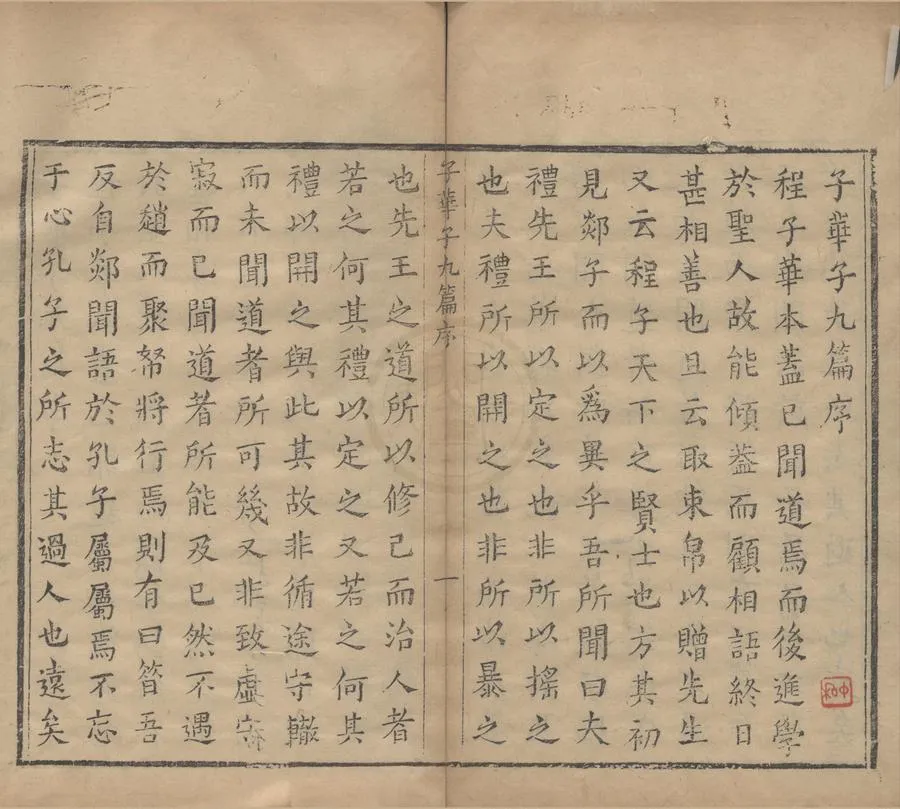 子華子九篇序
程子華本蓋已聞道焉而後進學
於聖人故能傾蓋而顧相語終日
甚相善也且云取束帛以贈先生
又云程子天下之賢士也方其初
見郯子而以爲異乎吾所聞曰夫
禮先王所以定之也非所以搖之
也夫禮所以開之也非所以暴之
子華子九篇序
一
也先王之道所以修己而治人者
若之何其禮以定之又若之何其
禮以開之與此其故非循途守轍
而未聞道者所可幾又非致虛
寂而已聞道者所能及已然不遇
於趙而聚帑將行焉則有曰笞吾
反自郯聞語於孔子屬屬焉不忘
于心孔子之所志其過人也遠矣